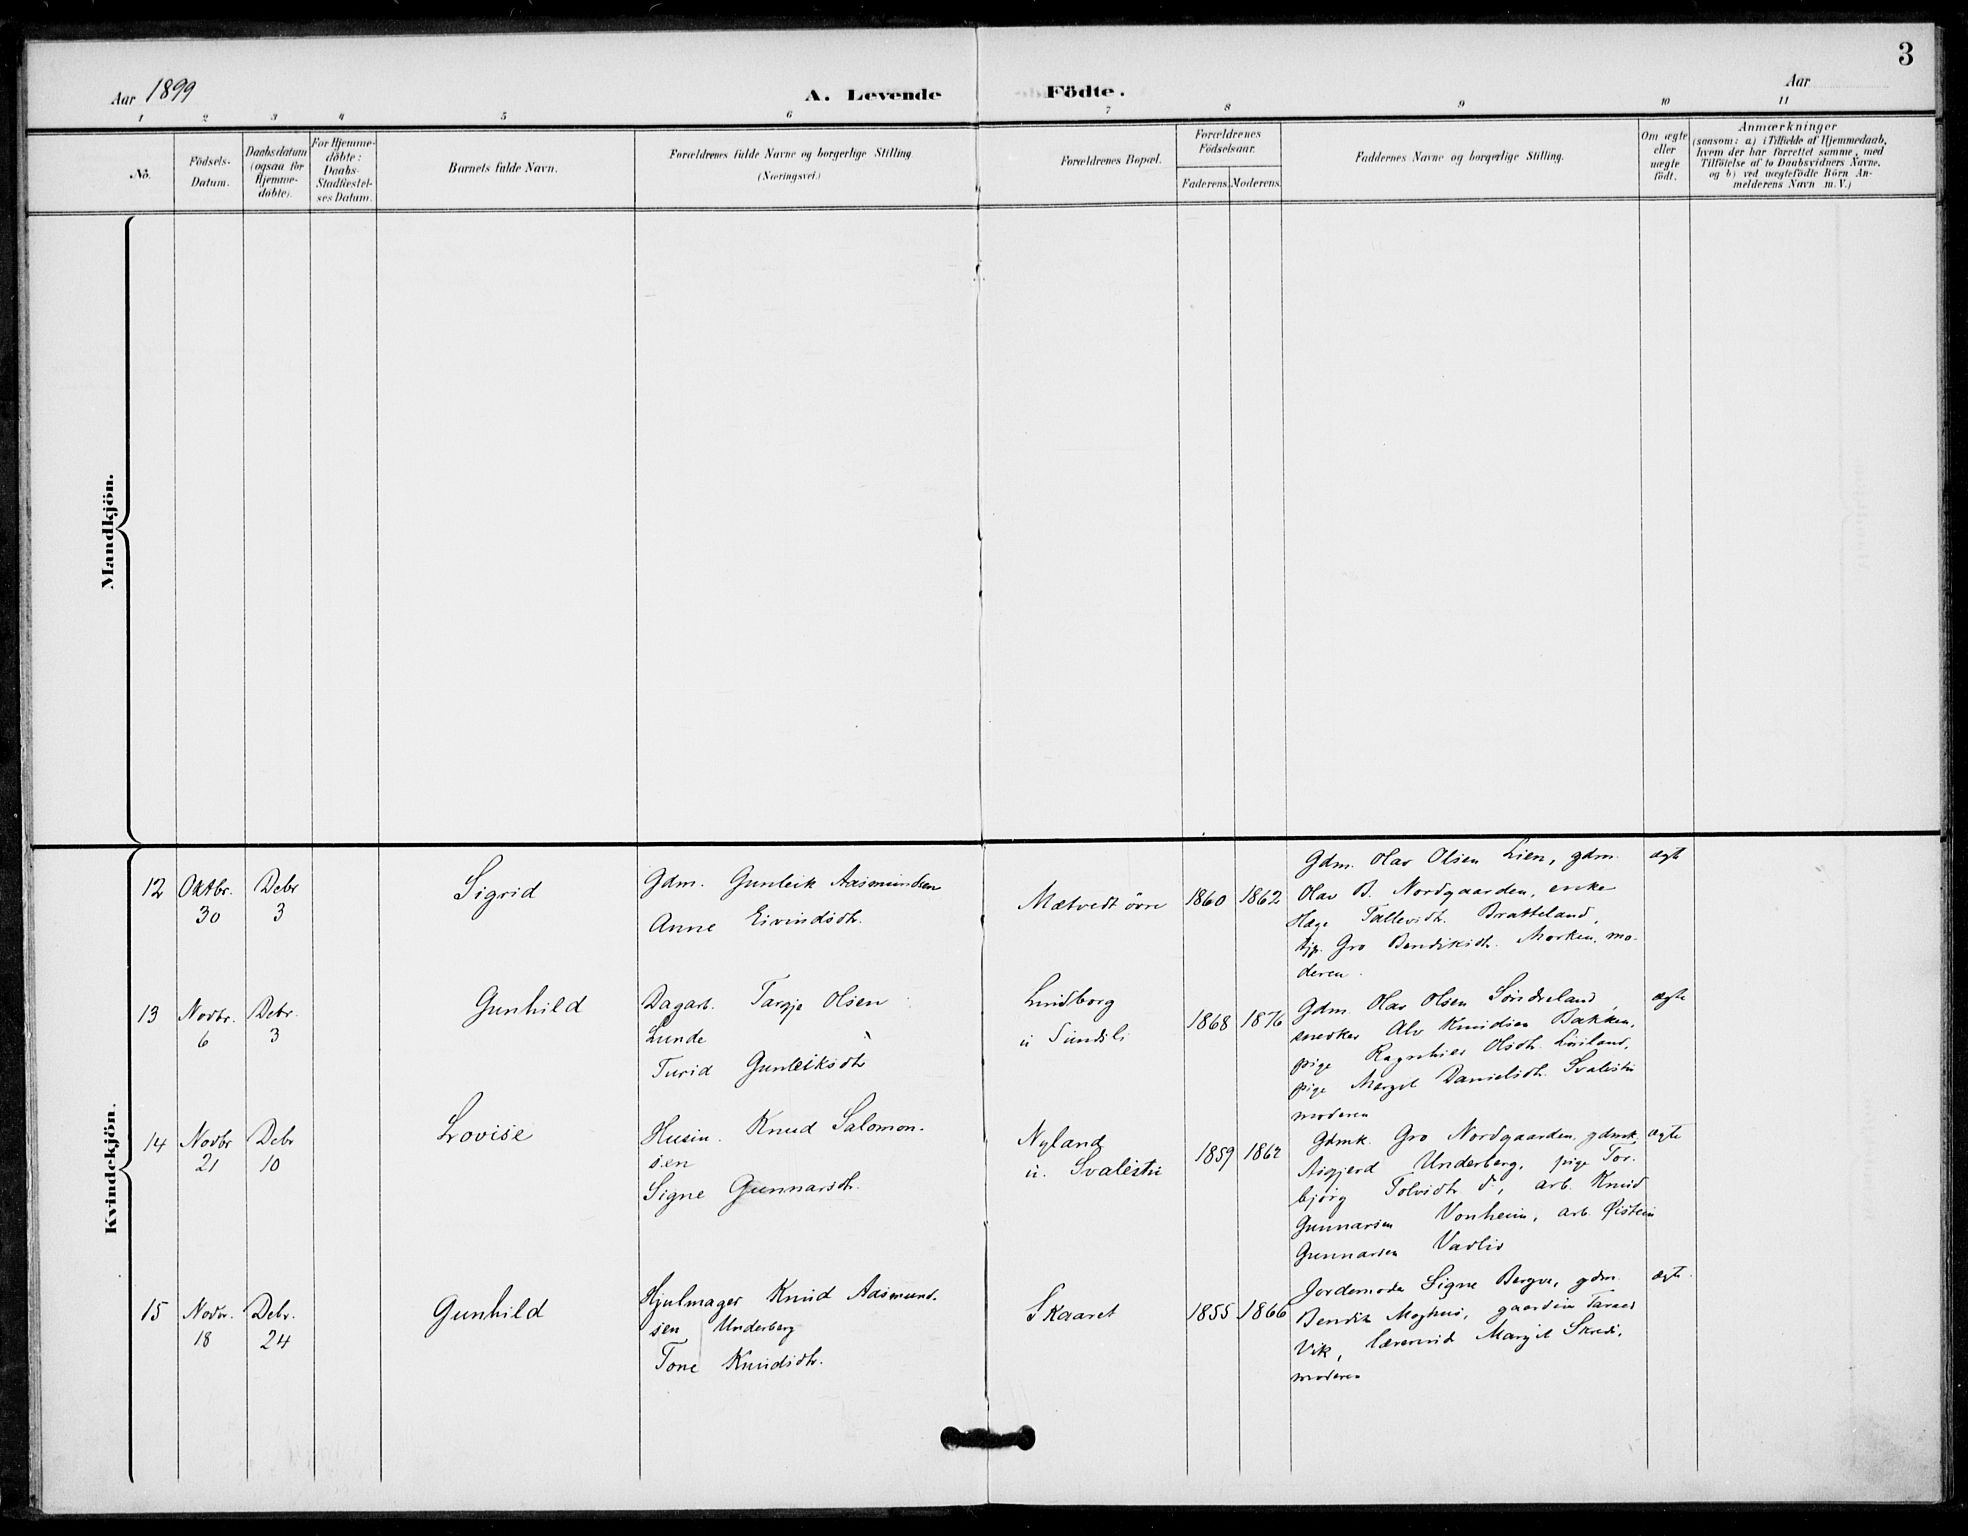 3
Aar 1899
A. Levende
Födte.
Aar
1 2 3 4 5 6 7 8 9 10 11
No.
Födsels-
Datum.
Daabsdatum
(ogsaa for
Hjemme-
döbte).
For Hjemme-
döbte:
Daabs-
Stadfæstel-
ses Datum.
Barnets fulde Navn.
Forældrenes fulde Navne og borgerlige Stilling
(Næringsvei.)
Forældrenes Bopæl.
Forældrenes
Födselsaar.
Faderens.
Moderens.
Faddernes Navne og borgerlige Stilling.
Om ægte
eller
uægte
födt.
Anmærkninger
(saasom: a) i Tilfælde af Hjemmedaab,
hvem der har forrettet samme, med
Tilföielse af to Daabsvidners Navne,
og b) ved uægtefödte Börn An-
melderens Navn m. V.)
Mandkjön.
Kvindekjön.
12
Oktbr.
30
Debr
3
Sigrid
Gdm. Gunleik Aasmundsen
Anne Eivindsdtr.
Mætvedt övre
1860
1862
Gdm. Olav Olsen Lien, gdm.
Olav B. Nordgaarden, enke
Hæge Tallevsdtr. Bratteland,
tjp. Gro Bendiksdtr. Morken, mo-
deren.
ægte
13
Novbr.
6
Debr.
3
Gunhild
Dagarb. Targje Olsen
Lunde
Turid Gunleiksdtr
Lindborg
u Sundsli
1868
1876
Gdm Olav Olsen Söndreland,
snedker Alv Knudsen Bakken,
pige Olsdtr.
pige Margit Danielsdtr. Svalestu
moderen
ægte
14
Novbr
21
Debr
10
Lovise
Husm. Knud Salomon-
sen
Signe Gunnarsdtr.
Nyland
u. Svalestu
1859
1862
Gdmk. Gro Nordgaarden, gdmk
Aagjerd Underberg, pige Tor-
björg do, arb. Knud
Gunnarsen Vonheim, arb. Øistein
Gunnarsen Vadlid
ægte
15
Novbr.
18
Debr.
24
Gunhild
Hjulmager Knud Aasmund-
sen Underberg
Tone Knudsdtr.
Skaaret
1855
1866
Jordemoder Signe Bergve, gdm.
Bendik
Vik, Margit Skredi,
moderen
ægte